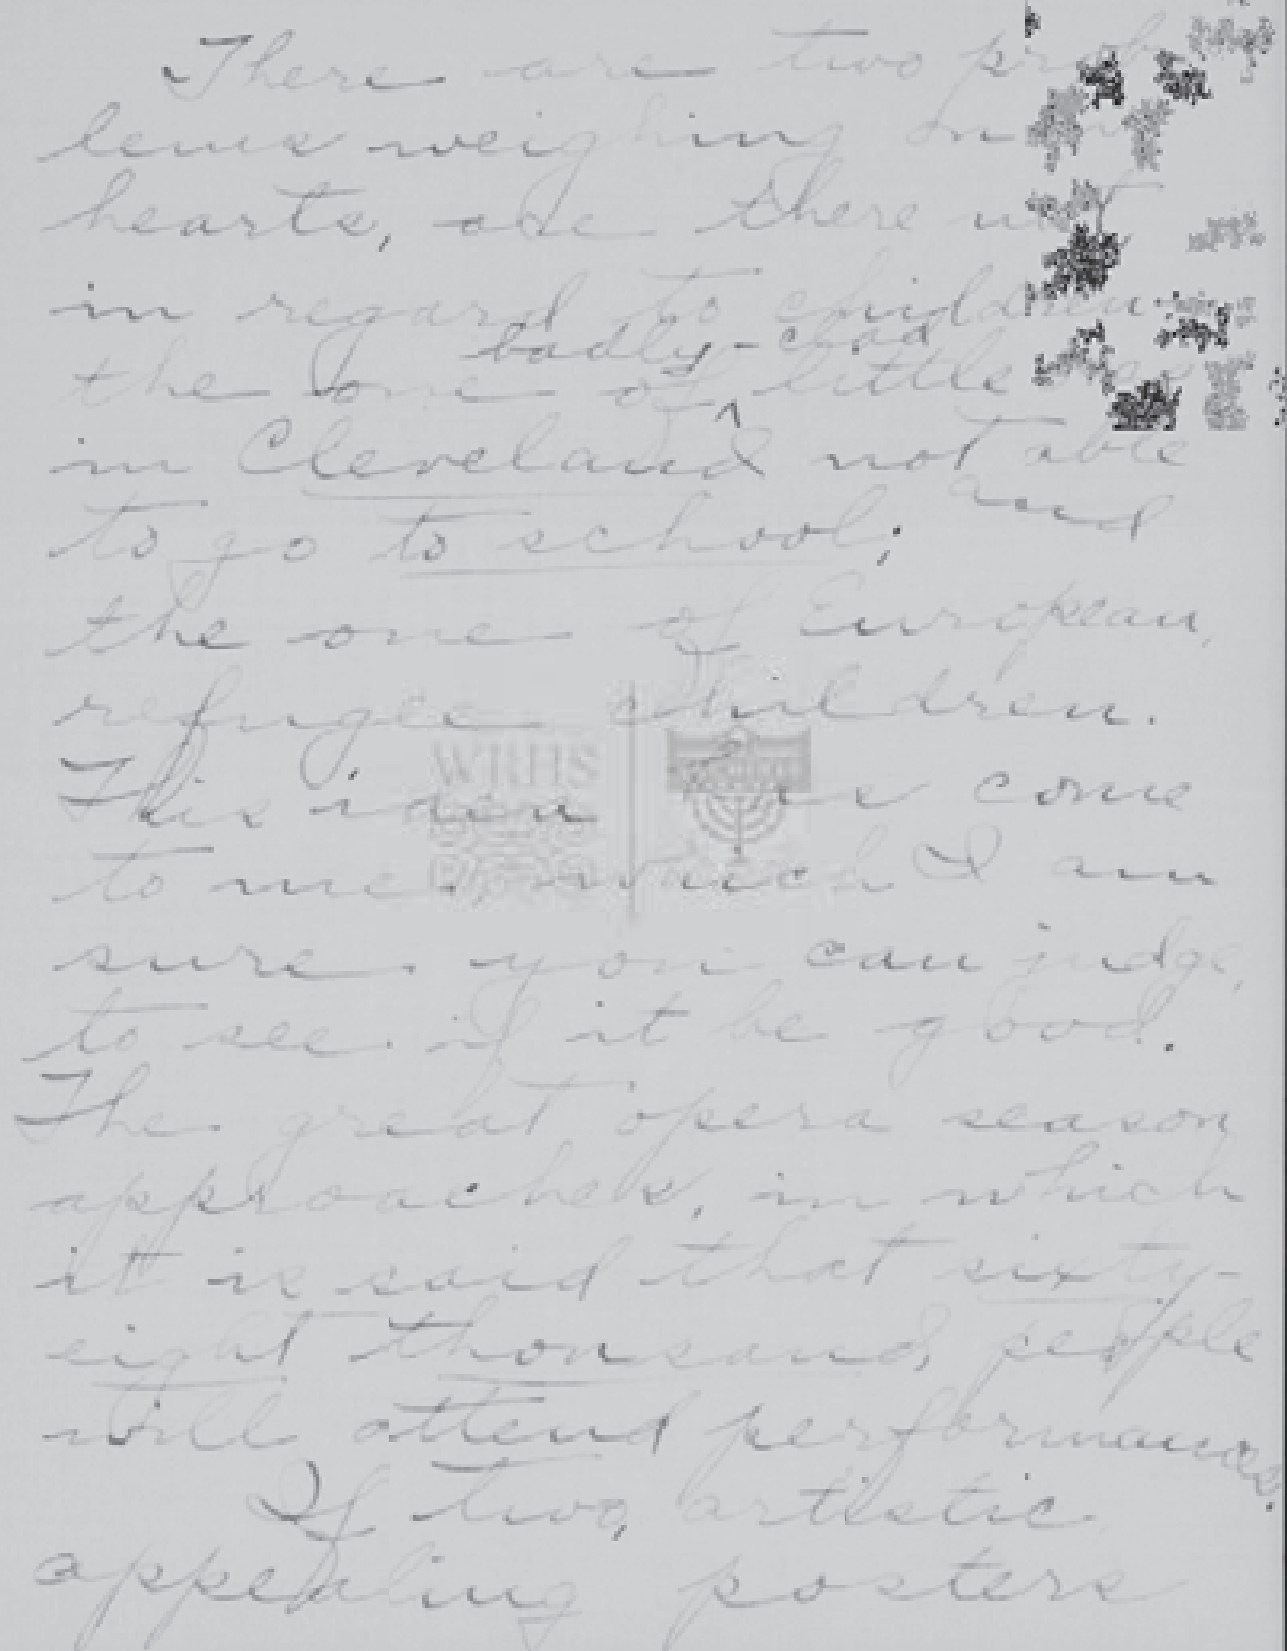 There are two prob
lems weighing on
hearts, are there not
in regard to children
badly-clad
the one of ^ little
in Cleveland not able
to go to school; and
the one of European
refugee children.
This idea has come
to me, which I am
sure you can judge,
to see if it be good.
The great opera season
approaches, in which
it is said that sixty-
eight thousand people
will attend performances.
If two, artistic
appealing posters
WRHS